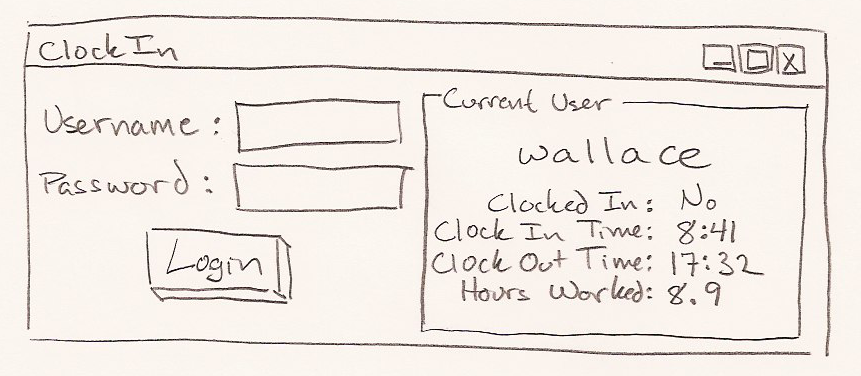 ClockIn
Username:
Password:
Login
Current User
wallace
Clocked In: No
Clock In Time: 8:41
Clock Out Time: 17:32
Hours Worked: 8.9